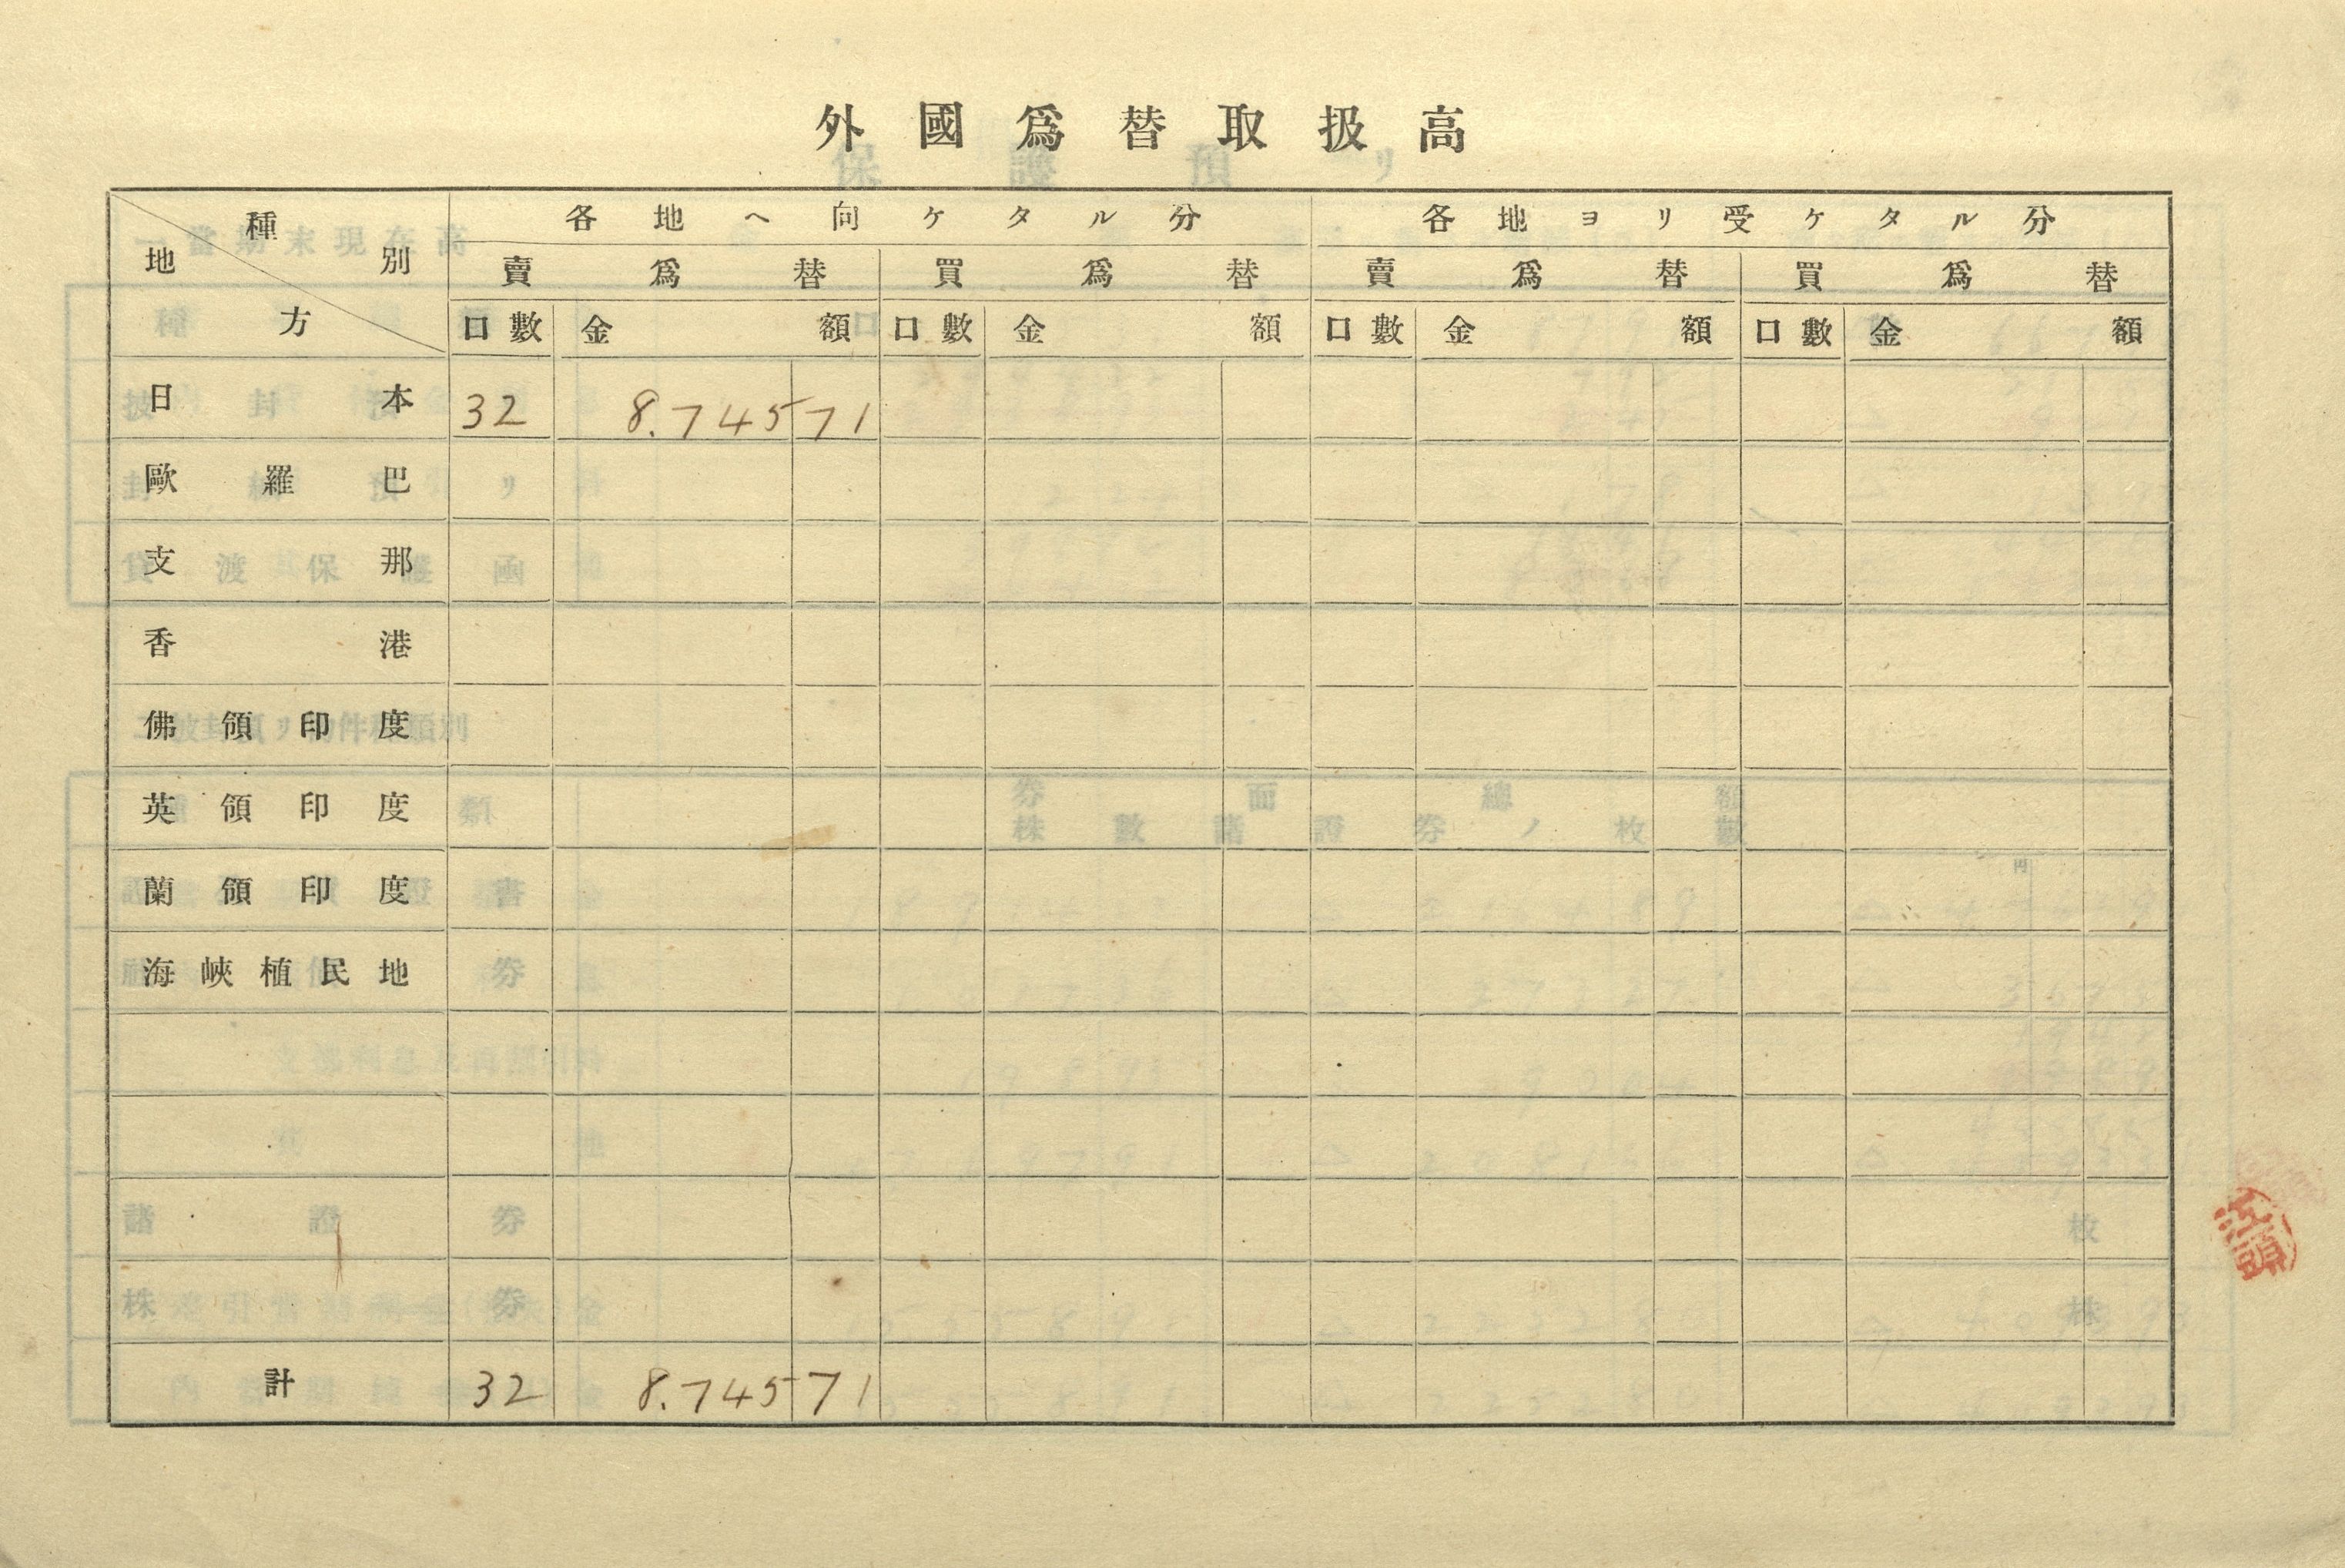 外國爲替取扱高
種別 地方 各地ヘ向ケタル分 各地ヨリ受ケタル分
賣爲替 買爲替 賣爲替 買爲替
口數 金額 口數 金額 口數 金額 口數 金額
日本 32 8.745 71
歐羅巴
支那
香港
佛領印度
英領印度
蘭領印度
海峽植民地
計 32 8.745 71